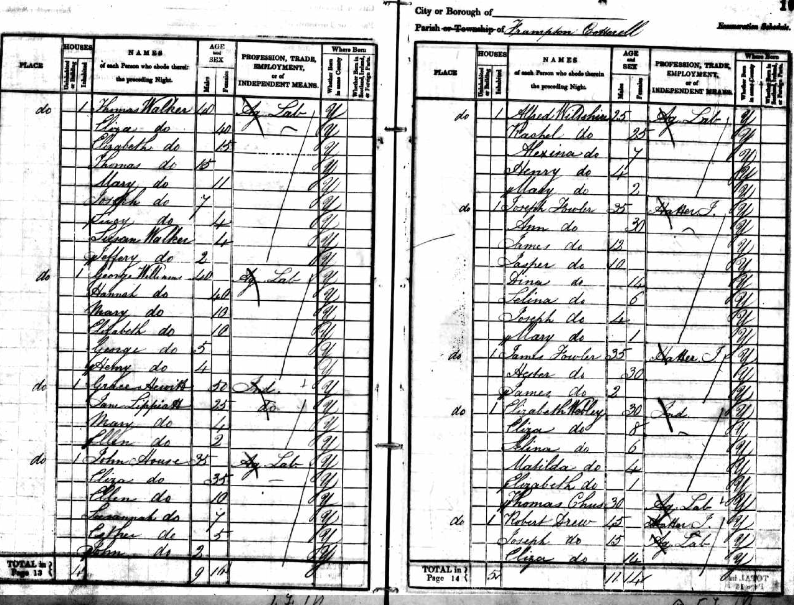 PLACE HOUSES Uninhabited or Building Inhabited NAMES of each Person who abode therein the preceding Night. AGE and SEX Males Females PROFESSION, TRADE, EMPLOYMENT, or of INDEPENDENT MEANS. Where Born Whether Born in same County Whether Born in Scotland, Ireland, or Foreign Parts.
do 1 Thomas Walker 40 Ag Lab Y
Eliza do 40 Y
Elizabeth do 15 Y
Thomas do 15 Y
Mary do 11 Y
Joseph do 7 Y
Lucy do 4 Y
Susan Walker 4 Y
Jeffery do 2 Y
do 1 George Williams 40 Ag Lab Y
Hannah do 40 Y
Mary do 10 Y
Elizabeth do 10 Y
George do 5 Y
Henry do 4 Y
do 1 Grace Hewitt Ind Y
Lippiatt 25 do Y
Mary do 4 Y
Ellen do 2 Y
do 1 John House 35 Ag Lab Y
Eliza do 35 Y
Ellen do 10 Y
Susannah do 7 Y
Esther do 5 Y
John do 2 Y
TOTAL in Page 13 4 9
City or Borough of
Parish or Township of Frampton Cotterell
Enumeration Schedule.
PLACE HOUSES Uninhabited or Building Inhabited NAMES of each Person who abode therein the preceding Night. AGE and SEX Males Females PROFESSION, TRADE, EMPLOYMENT, or of INDEPENDENT MEANS. Where Born Whether Born in same County Whether Born in Scotland, Ireland, or Foreign Parts.
do 1 Alfred Wiltshire 25 Ag Lab Y
Rachel do 25 Y
Alexina do 7 Y
Henry do 4 Y
Mary do 2 Y
do 1 Joseph Fowler 35 Hatter J Y
Ann do 30 Y
James do 12 Y
Jasper do 10 Y
Dina do Y
Selina do 6 Y
Joseph do 4 Y
Mary do 1 Y
do 1 James Fowler 35 Hatter J Y
Hester do 30 Y
James do 2 Y
do 1 Elizabeth 30 Ind Y
Eliza do 8 Y
do 6 Y
Matilda do 4 Y
Elizabeth do 1 Y
Thomas 30 Ag Lab Y
do 1 Robert Drew 45 Hatter J Y
Joseph do 15 Ag Lab Y
Eliza do 14 Y
TOTAL in Page 14 5 11 14